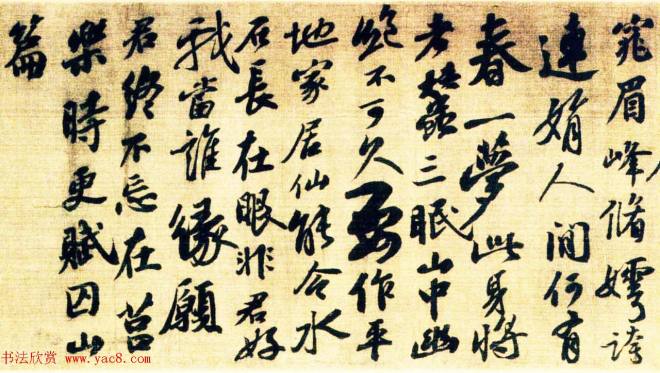 窕眉峰脩嫮誇
連娟人間何有
春一夢此身將
老蠶三眠山中幽
絶不可久要作平
地家居仙能令水
石長在眼非君好
我當誰緣願
君終不忘在莒
樂時更賦囚山
篇
书法欣赏 www.yac8.com